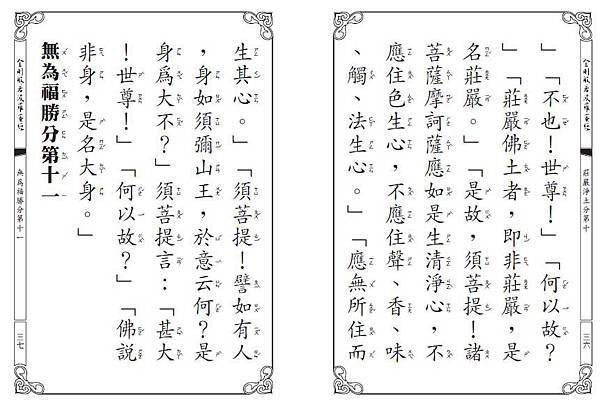 金剛般若波羅蜜經
莊嚴淨土分第十
三六
」「不也！世尊！」「何以故？
」「莊嚴佛土者，即非莊嚴，是
名莊嚴。」「是故，須菩提！諸
菩薩摩訶薩應如是生清淨心，不
應住色生心，不應住聲、香、味
、觸、法生心。」「應無所住而
生其心。」「須菩提！譬如有人
，身如須彌山王，於意云何？是
身爲大不？」須菩提言：「甚大
！世尊！」「何以故？」「佛說
非身，是名大身。」
無為福勝分第十一
金剛般若波羅蜜經
無為福勝分第十一
三七